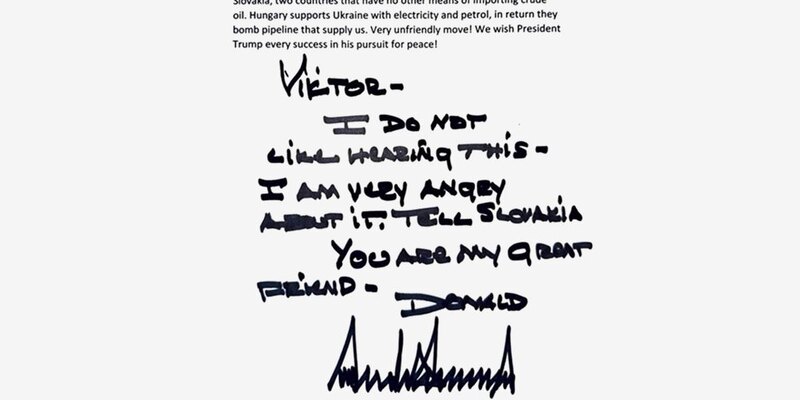 Slovakia, two countries that have no other means of importing crude
oil. Hungary supports Ukraine with electricity and petrol, in return they
bomb pipeline that supply us. Very unfriendly move! We wish President
Trump every success in his pursuit for peace!
VIKTOR-
I DO NOT
LIKE HEARING THIS-
I AM VERY ANGRY
ABOUT IT. TELL SLOVAKIA
YOU ARE MY GREAT
FRIEND- DONALD